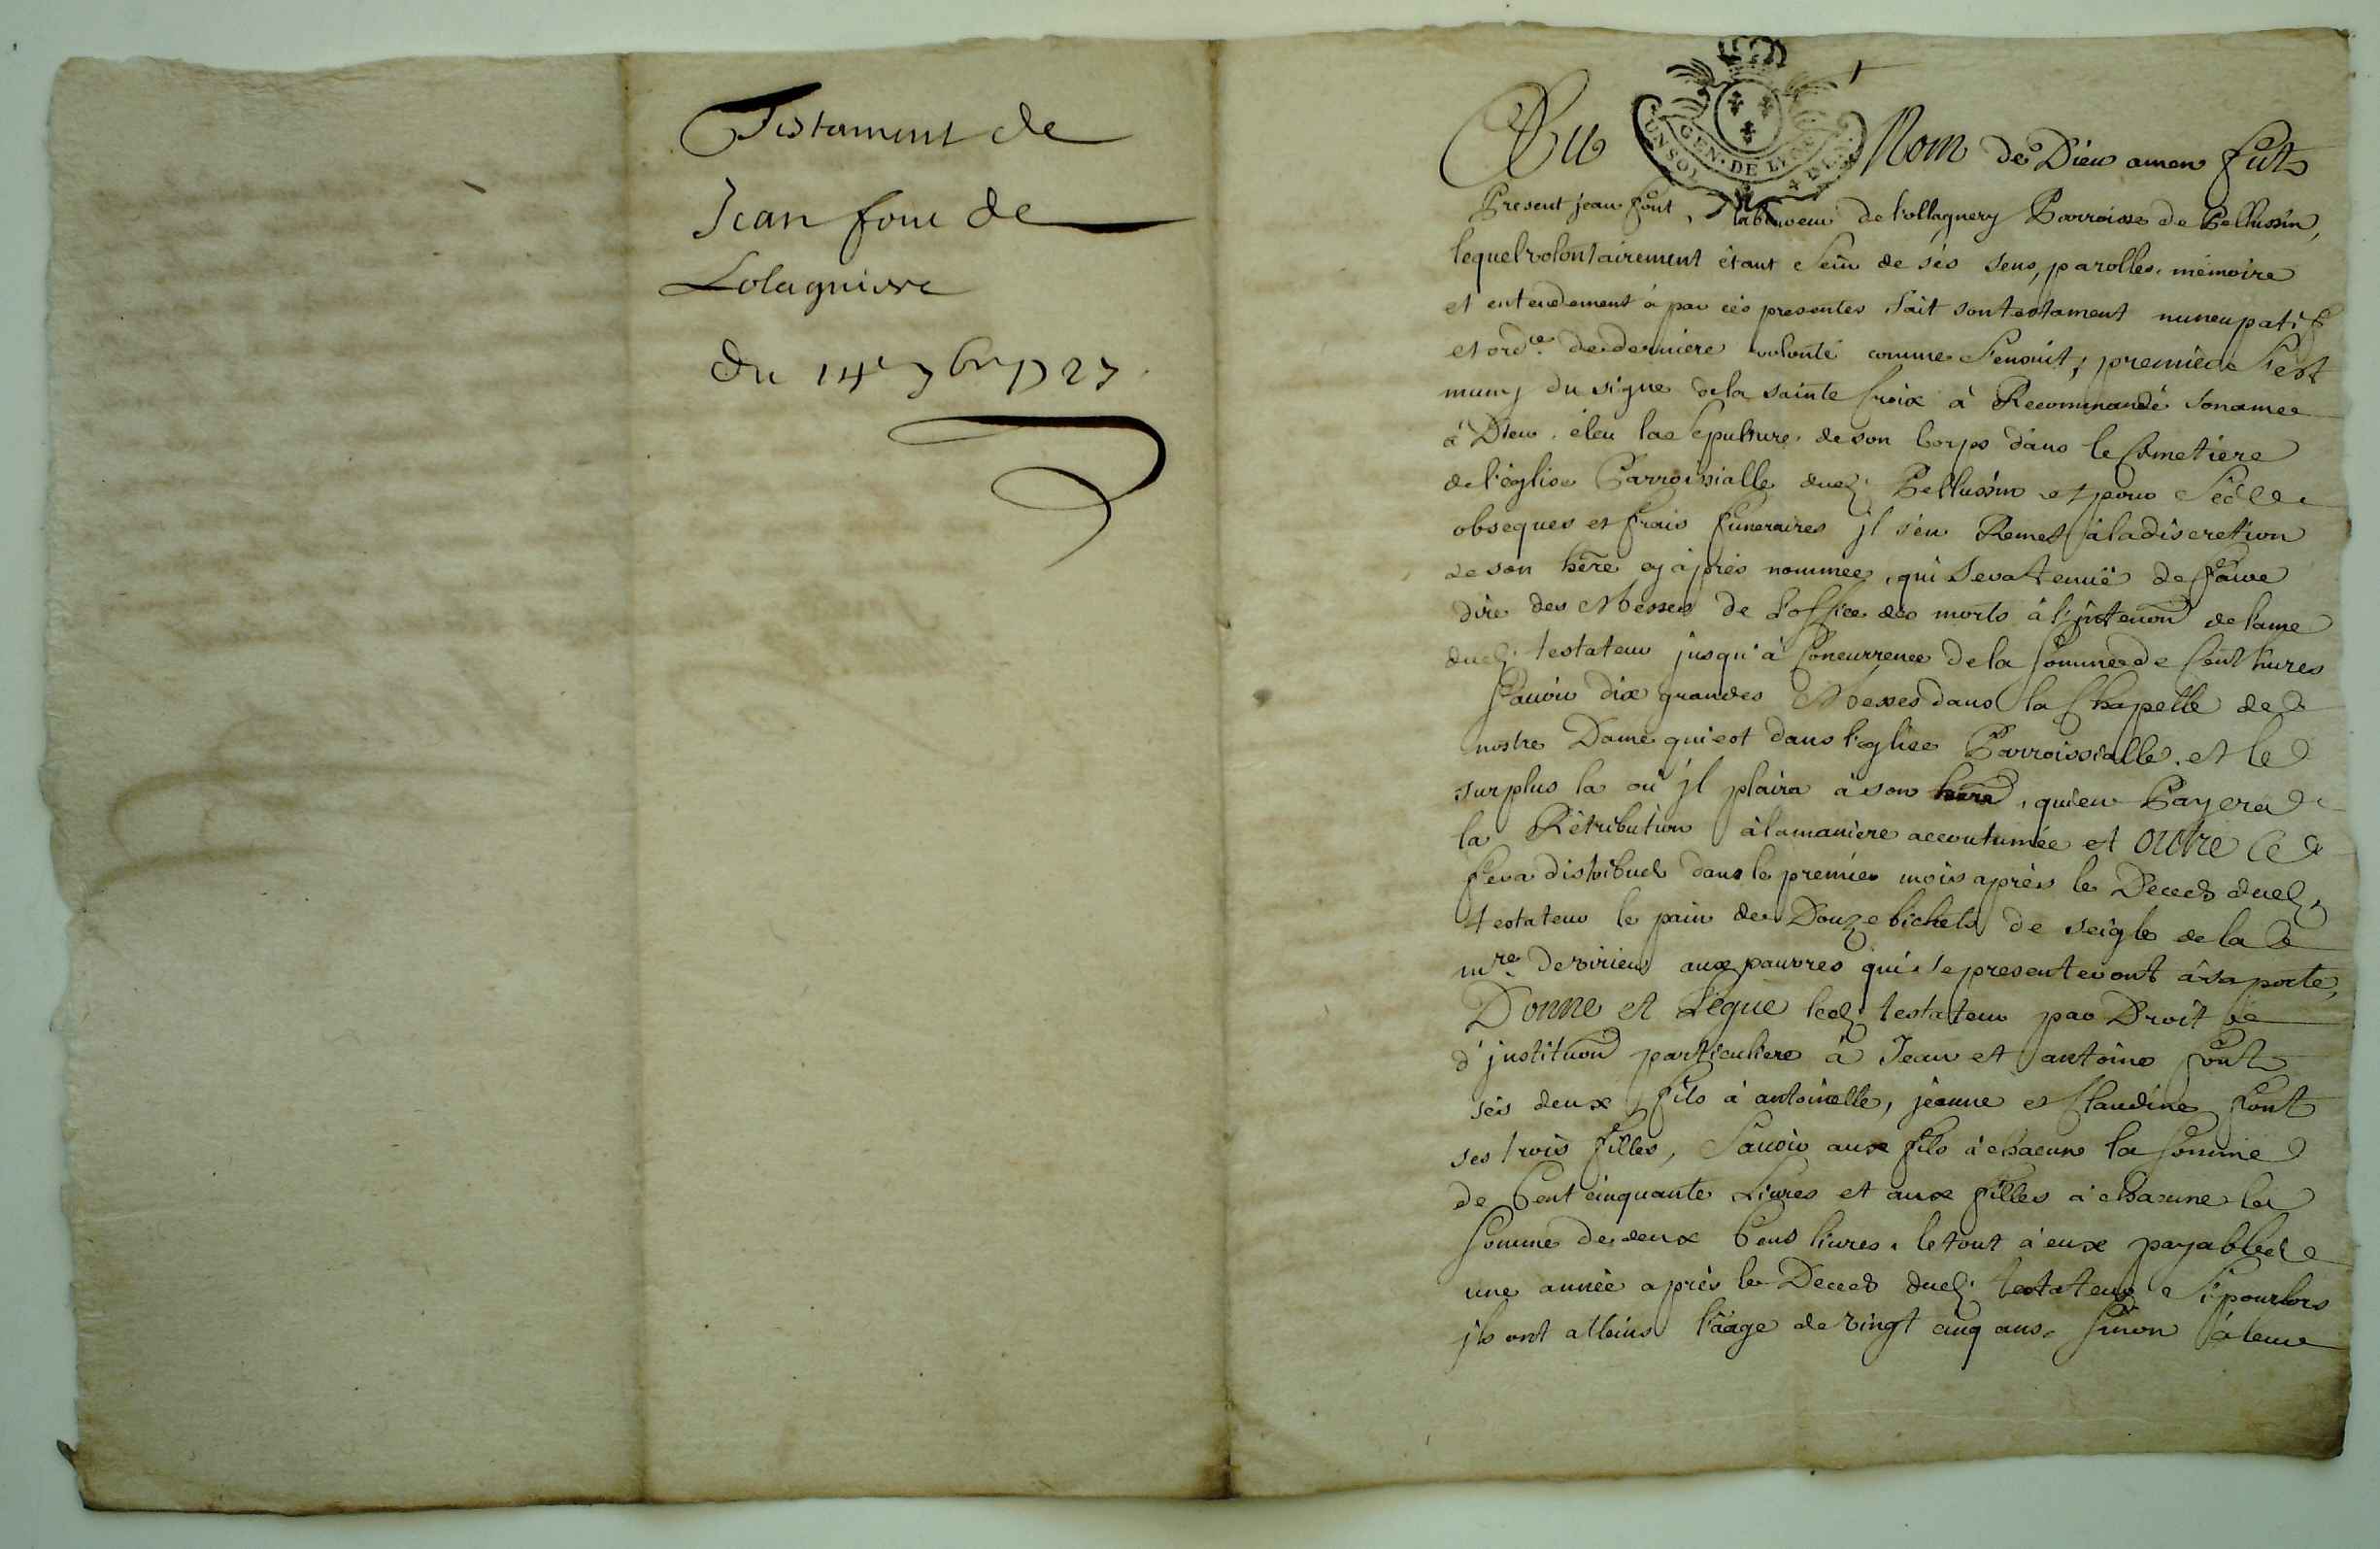 Testament de
Jean fou de
Lolagniere
du 14e 7bre 1727
Au Nom de Dieu amen fut
GEN. DE LYON
UN SOL
Present jean font, laboureur de l'ollagnery Parroisse de Pellussin,
lequel volontairement étant sein de ses sens, parolles, mémoire
et entendement à par ces presentes fait son testament nuncupatif
et ordce. de derniere volonté comme s'ensuit, premier s'est
muny du signe de la sainte Croix à Recommandé son ame
à Dieu, éleu la sepulture de son Corps dans le Cimetiere
de l'église Parroissialle dud. Pellussin et pour ses
obseques et frais funeraires jl s'en Remet à la discretion
de son here cy àprés nommee, qui sera tenuë de faire
dire des Messes de l'office des morts à l'jntenon de l'ame
dud. testateur jusqu'à Concurrence de la somme de Cent liures
sauoir dix grandes Messes dans la Chapelle de
nostre Dame qui est dans l'eglise Parroissialle, et le
surplus la où jl plaira à son here, qui en Payera
la Rétribution à la maniere accoutumée et outre ce
sera distribué dans le premier mois après le Deceds dud.
testateur le pain de Douze bichets de seigle de la
mre. de virieu aux pauvres qui se presenteront à sa porte,
Donne et Légue led. testateur par Droit
d'jnstituon particuliere à Jean et antoine font
ses deux fils à antoinette, jeanne et Claudine font
ses trois filles, Sauoir aux fils à chacun la somme
de Cent cinquante Liures et aux filles à chacune la
somme de deux Cens liures, le tout à eux payable
une année après le Deceds dud. testateur si pour lors
jls ont atteins l'âage de vingt cinq ans, sinon à leur